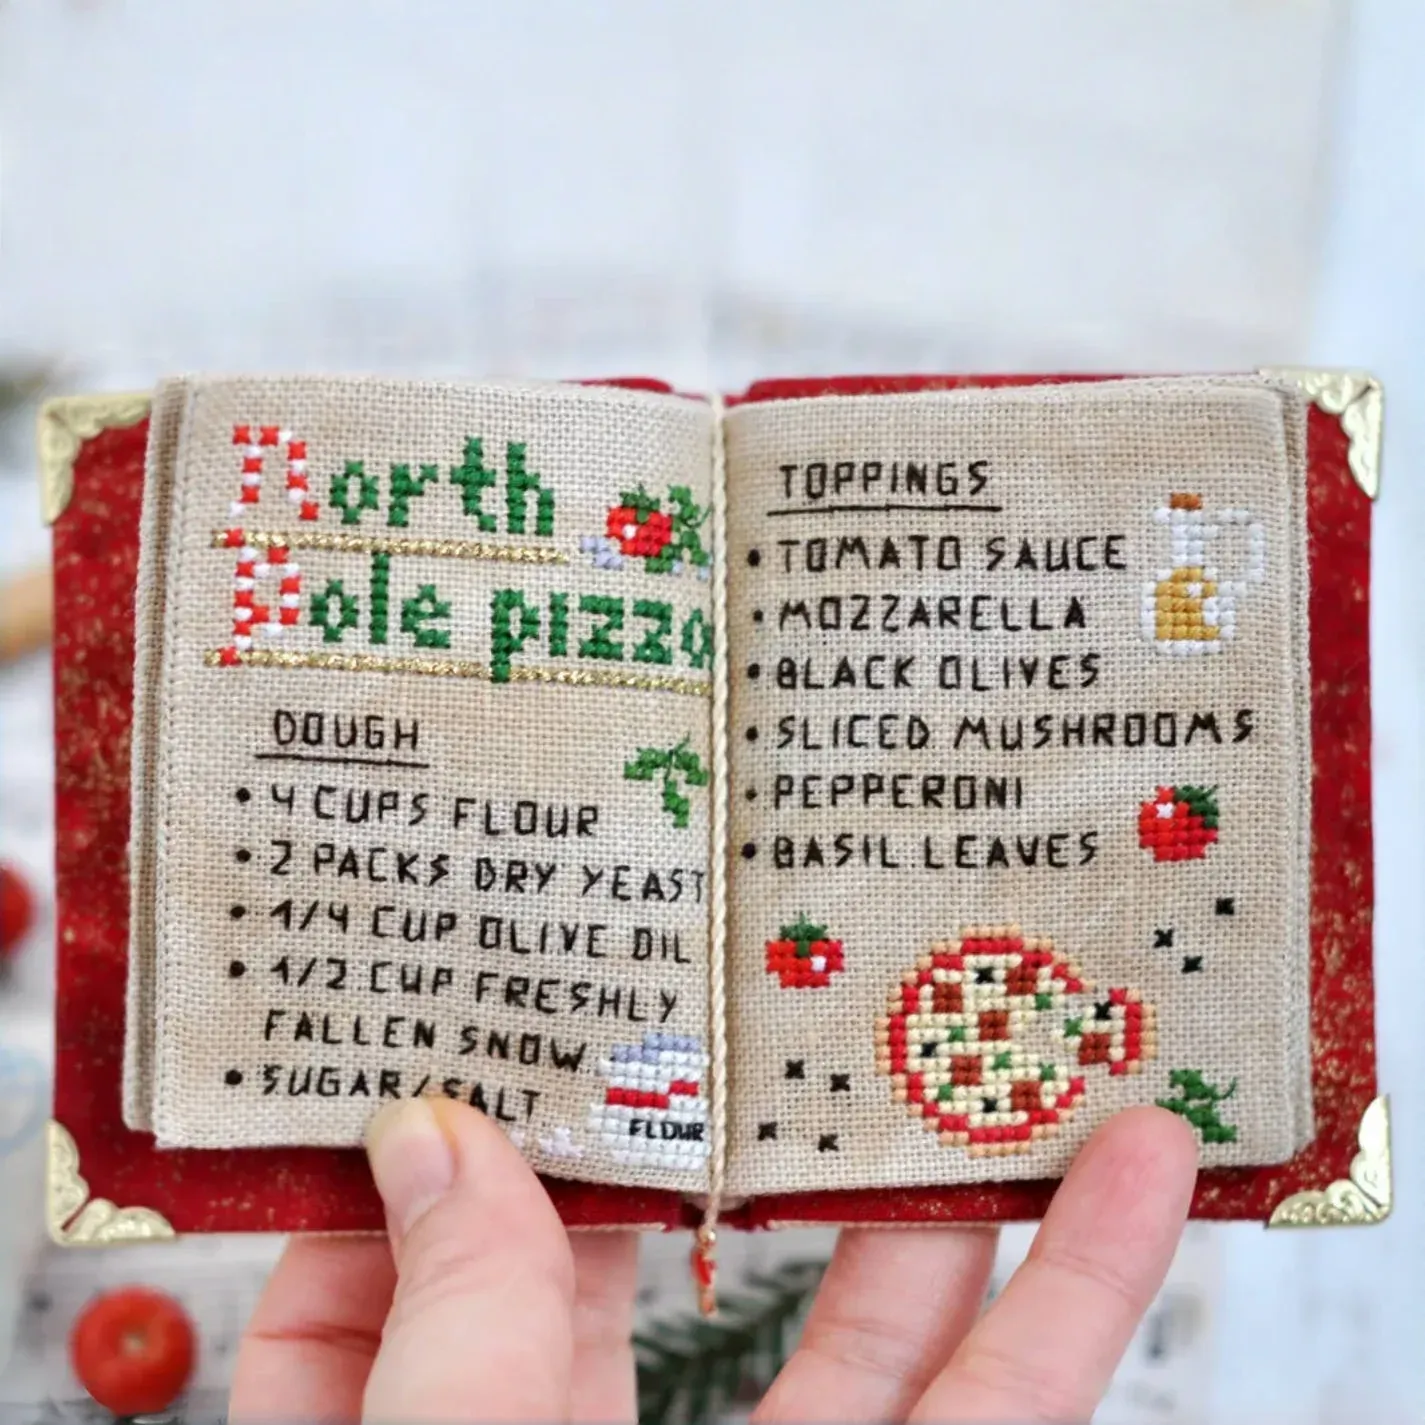 North
Pole pizza
DOUGH
• 4 CUPS FLOUR
• 2 PACKS DRY YEAST
• 1/4 CUP OLIVE OIL
• 1/2 CUP FRESHLY
FALLEN SNOW
• SUGAR/SALT
FLOUR
TOPPINGS
• TOMATO SAUCE
• MOZZARELLA
• BLACK OLIVES
• SLICED MUSHROOMS
• PEPPERONI
• BASIL LEAVES